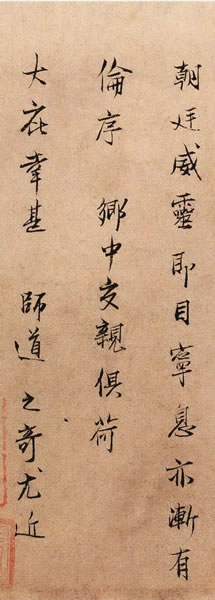 朝廷威靈即目寧息亦漸有
倫序 鄉中交親俱荷
大庇幸甚 師道之奇尤近